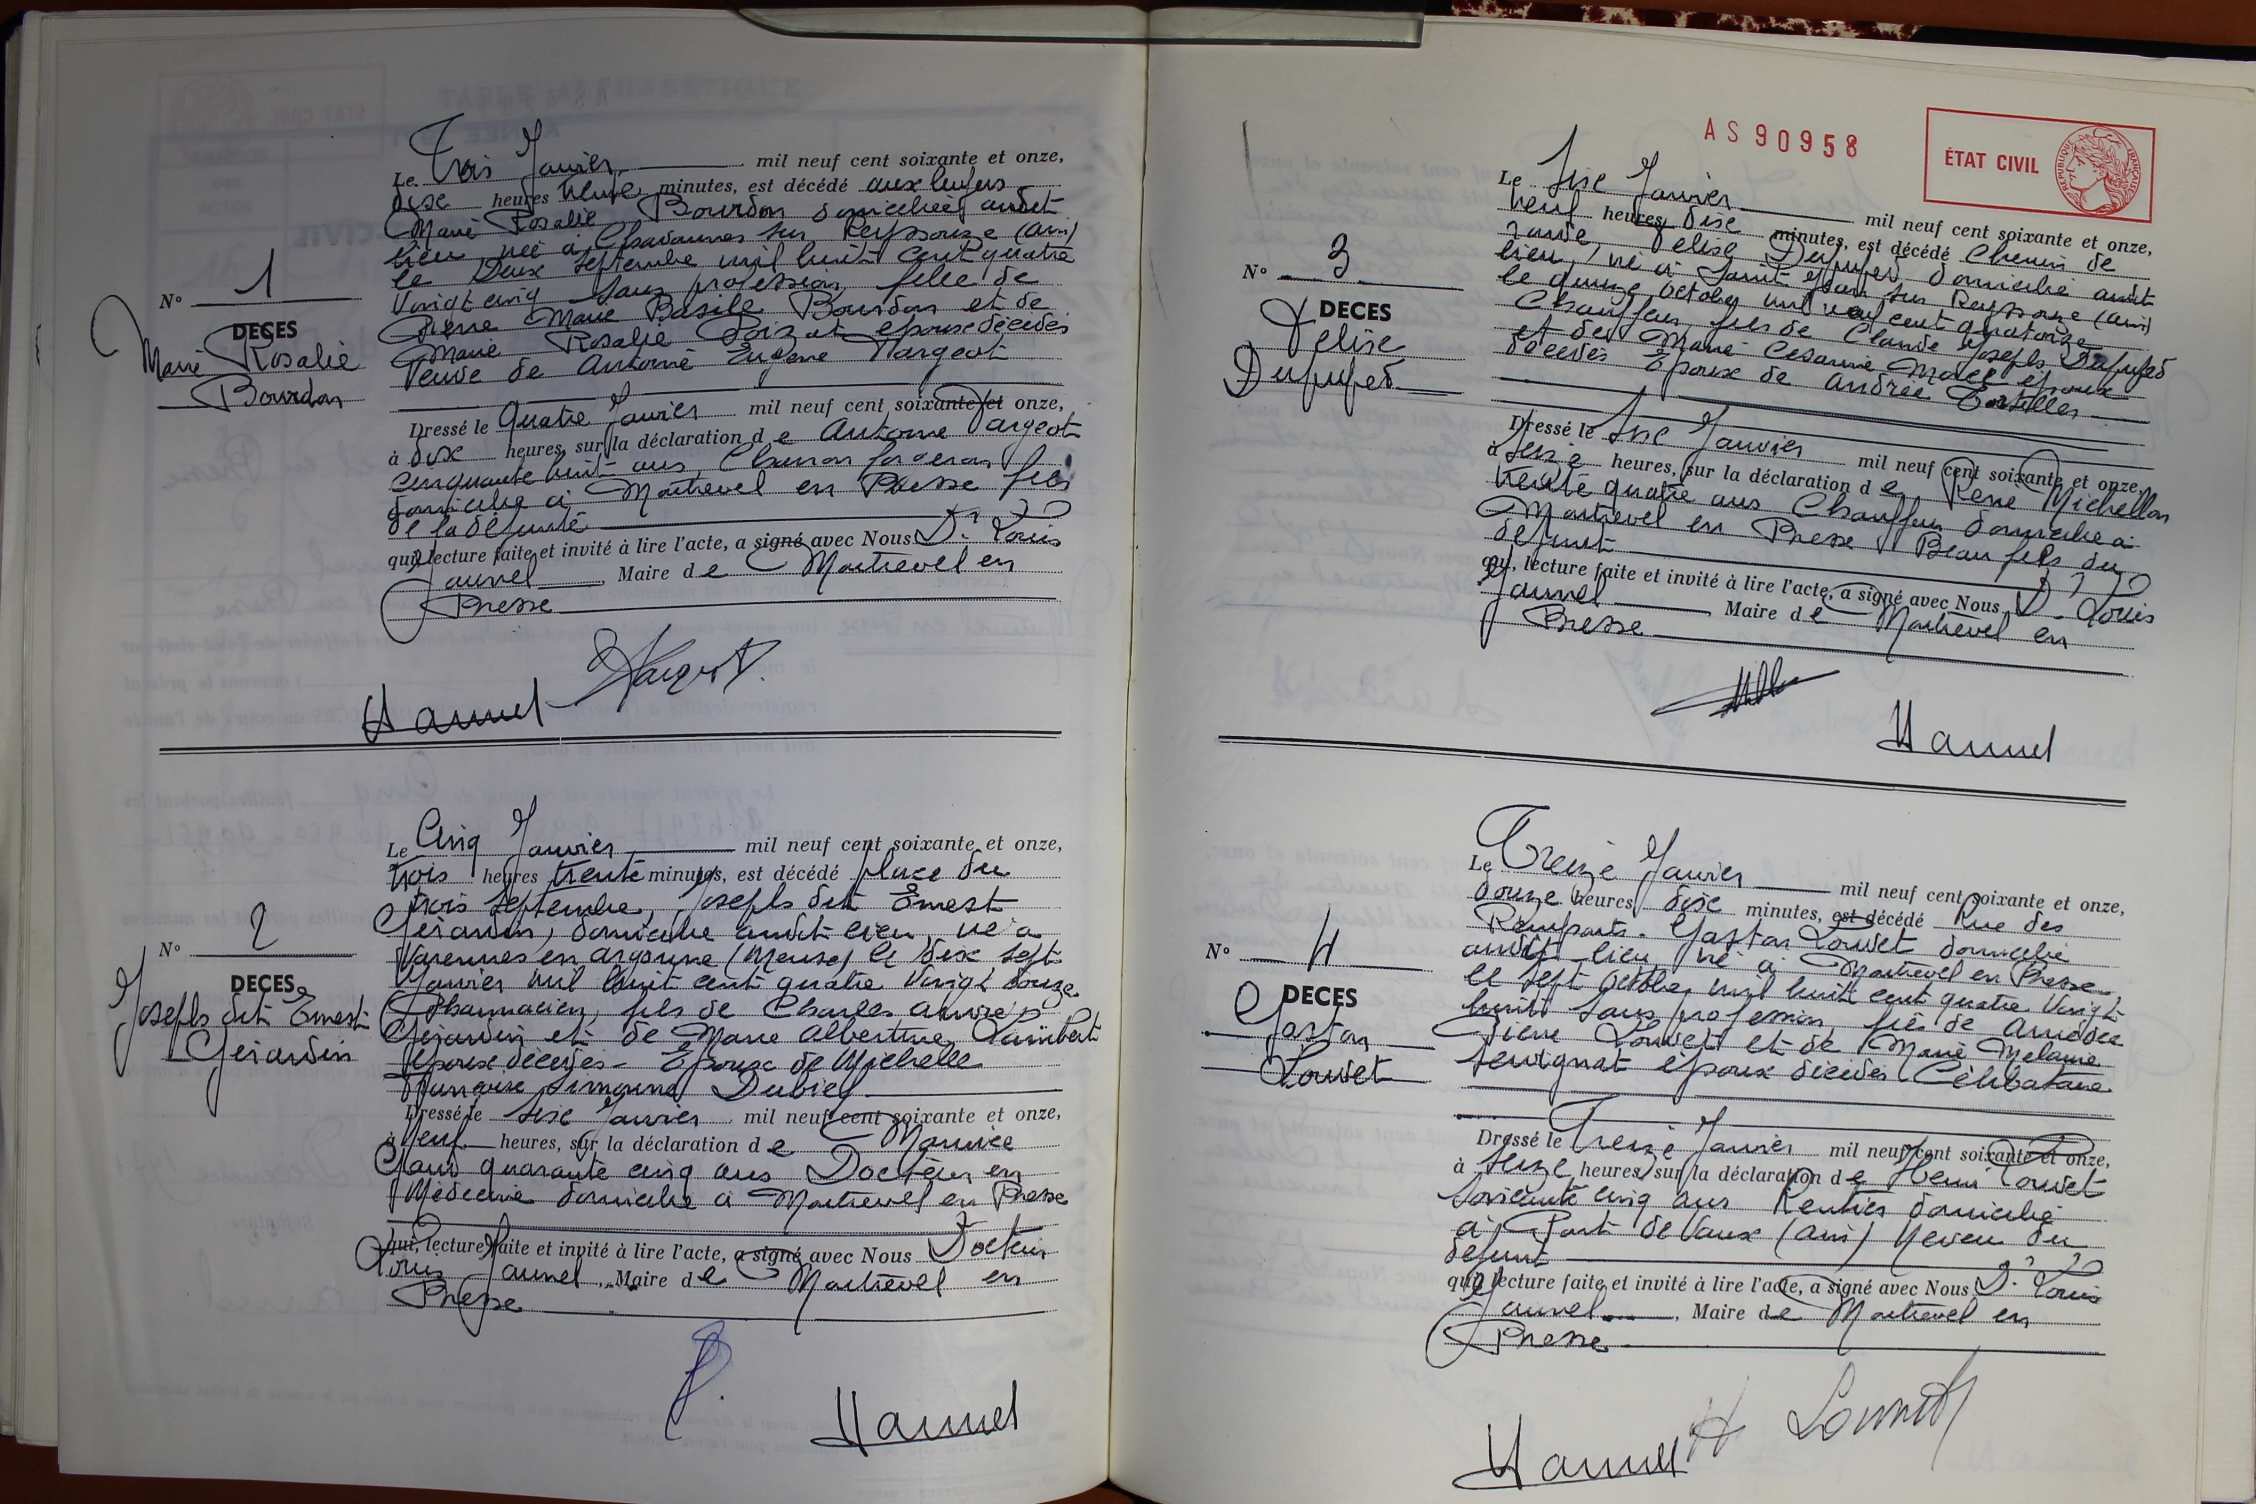 N° 1
DECES
Marie Rosalie
Bourdon
Le Trois Janvier mil neuf cent soixante et onze,
dix heures trente minutes, est décédé aux Luyers
Marie Rosalie Bourdon domiciliée audit
lieu née à Chavannes sur Reyssouze (Ain)
le Deux Septembre mil huit cent quatre
Vingt cinq Sans profession, fille de
Pierre Marie Basile Bourdon et de
Marie Rosalie Loizat époux décédés
Veuve de Antoine Eugène Pargeot
Dressé le Quatre Janvier mil neuf cent soixante et onze,
à dix heures, sur la déclaration de Antoine Pargeot
cinquante huit ans, Charron forgeron
domicilié à Montrevel en Bresse fils
de la défunte
qui, lecture faite et invité à lire l'acte, a signé avec Nous Dr Louis
Jaunel, Maire de Montrevel en
Bresse
N° 2
DECES
Joseph dit Ernest
Gérardin
Le Cinq Janvier mil neuf cent soixante et onze,
trois heures trente minutes, est décédé place du
trois Septembre, Joseph dit Ernest
Gérardin, domicilié audit lieu, né à
Varennes en Argonne (Meuse) le dix sept
Janvier mil huit cent quatre Vingt douze
Pharmacien, fils de Charles André
Gérardin et de Marie Albertine Lambert
époux décédés - Epoux de Michelle
Françoise Simonne Dubief
Dressé le Six Janvier mil neuf cent soixante et onze,
à Neuf heures, sur la déclaration de Maurice
quarante cinq ans Docteur en
Médecine domicilié à Montrevel en Bresse
qui, lecture faite et invité à lire l'acte, a signé avec Nous Docteur
Louis Jaunel, Maire de Montrevel en
Bresse
AS 90958
ÉTAT CIVIL
RÉPUBLIQUE FRANÇAISE
N° 3
DECES
Félix
Dupuped
Le Six Janvier mil neuf cent soixante et onze,
neuf heures dix minutes, est décédé Chemin de
ronde, Félix Dupuped domicilié audit
lieu, né à Saint Jean sur Reyssouze (Ain)
le quinze Octobre mil neuf cent quatorze
Chauffeur fils de Claude Joseph Dupuped
et de Marie Césarine Morel époux
décédés Epoux de Andrée
Dressé le Six Janvier mil neuf cent soixante et onze,
à Seize heures, sur la déclaration de René Michellon
trente quatre ans Chauffeur domicilié à
Montrevel en Bresse Beau fils du
défunt
qui, lecture faite et invité à lire l'acte, a signé avec Nous Dr Louis
Jaunel, Maire de Montrevel en
Bresse
N° 4
DECES
Gaston
Louvet
Le Treize Janvier mil neuf cent soixante et onze,
douze heures dix minutes, est décédé Rue des
Remparts. Gaston Louvet domicilié
audit lieu, né à Montrevel en Bresse
le Sept Octobre mil huit cent quatre Vingt
huit Sans profession, fils de Amédée
Pierre Louvet et de Marie Mélanie
époux décédés Célibataire
Dressé le Treize Janvier mil neuf cent soixante et onze,
à Seize heures, sur la déclaration de Henri Louvet
Soixante cinq ans Rentier domicilié
à Pont de Vaux (Ain) Neveu du
défunt
qui, lecture faite et invité à lire l'acte, a signé avec Nous Dr Louis
Jaunel, Maire de Montrevel en
Bresse